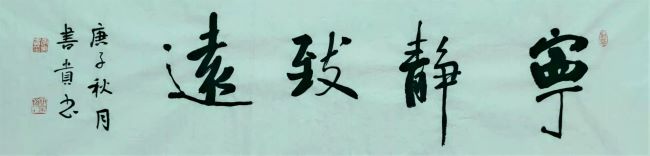 寧靜致遠
庚子秋月
書貴書